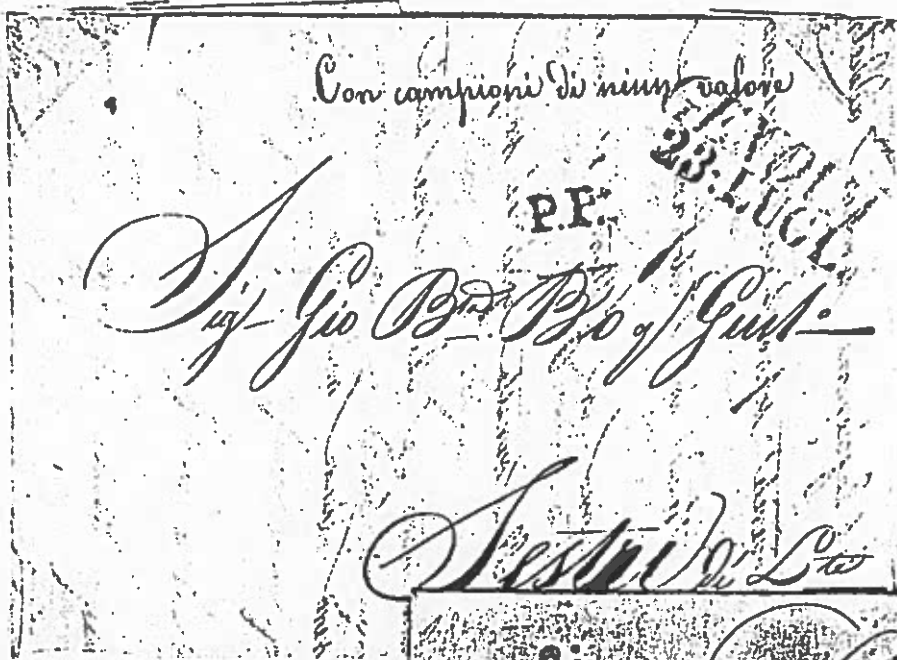 Con campioni di niun valore
23. LUGL.
P.P.
Sig. Gio Bta Bo q. Giust.
Sestri di Lte